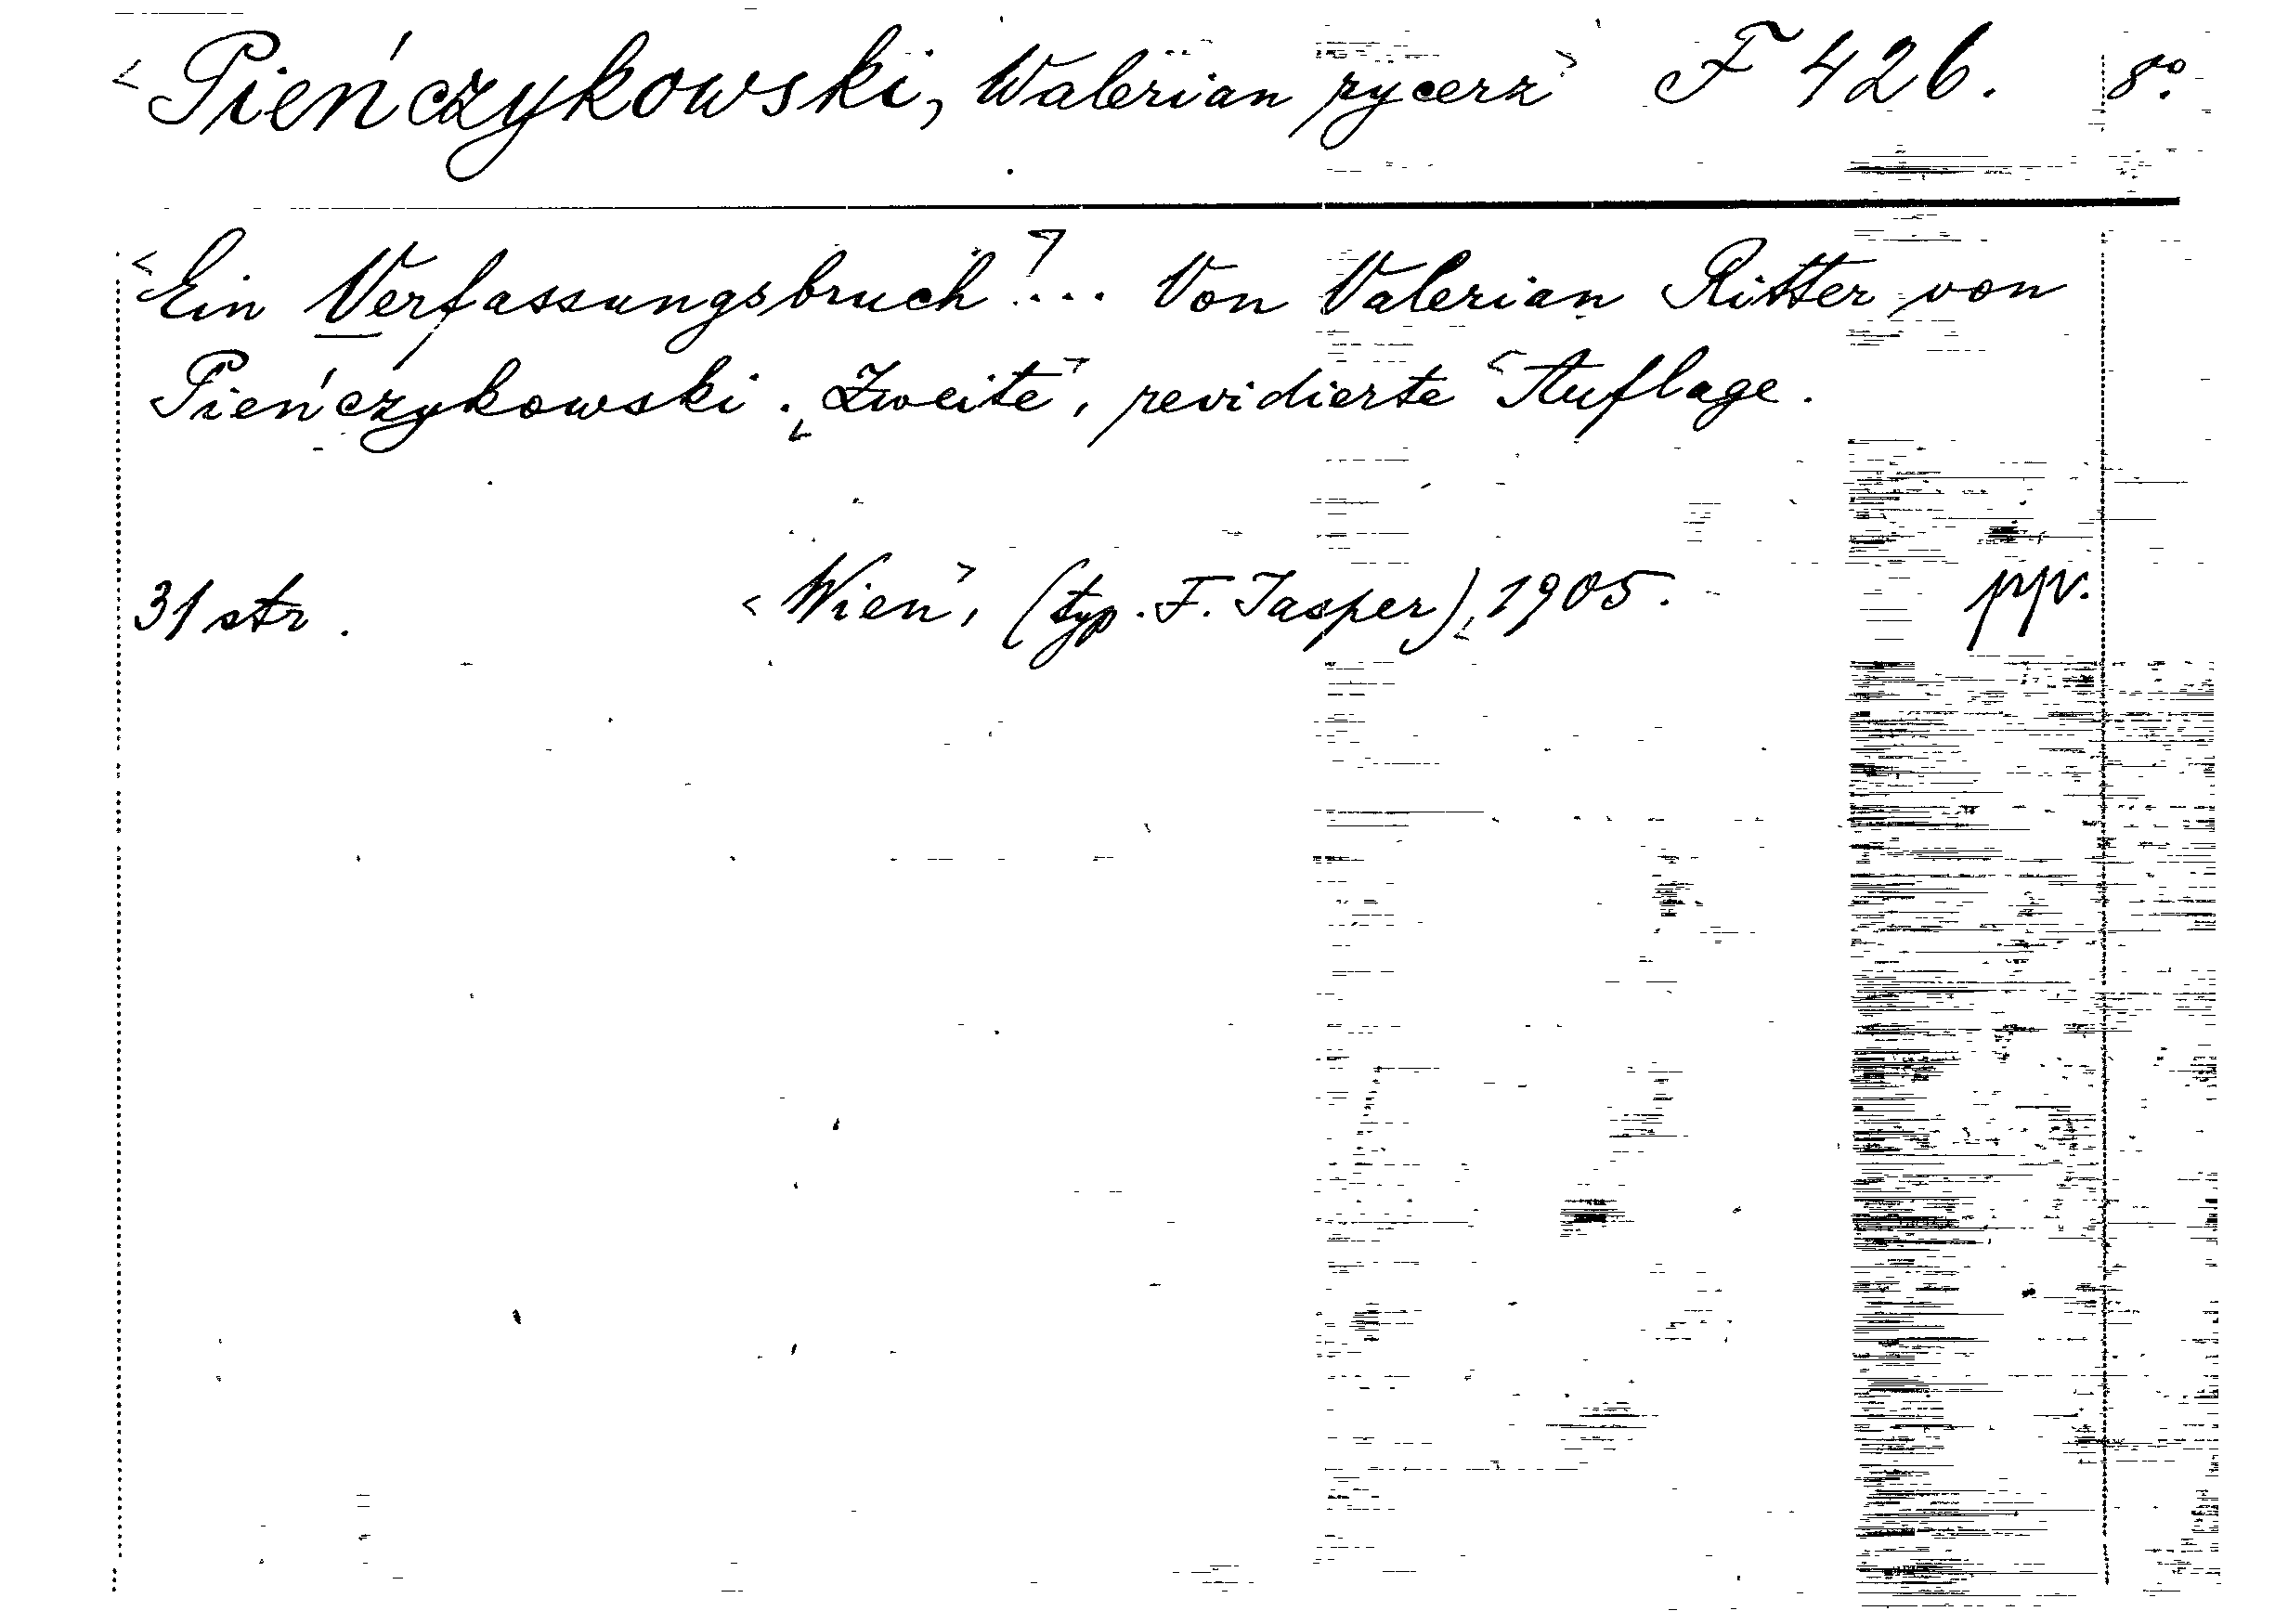 <Pieńczykowski, Walerian rycerz> F 426. 8º.
<Ein Verfassungsbruch?>... Von Valerian Ritter von
Pieńczykowski. <Zweite>, revidierte <Auflage.
31 str. <Wien>, (typ. F. Jasper), <1905. ppr.